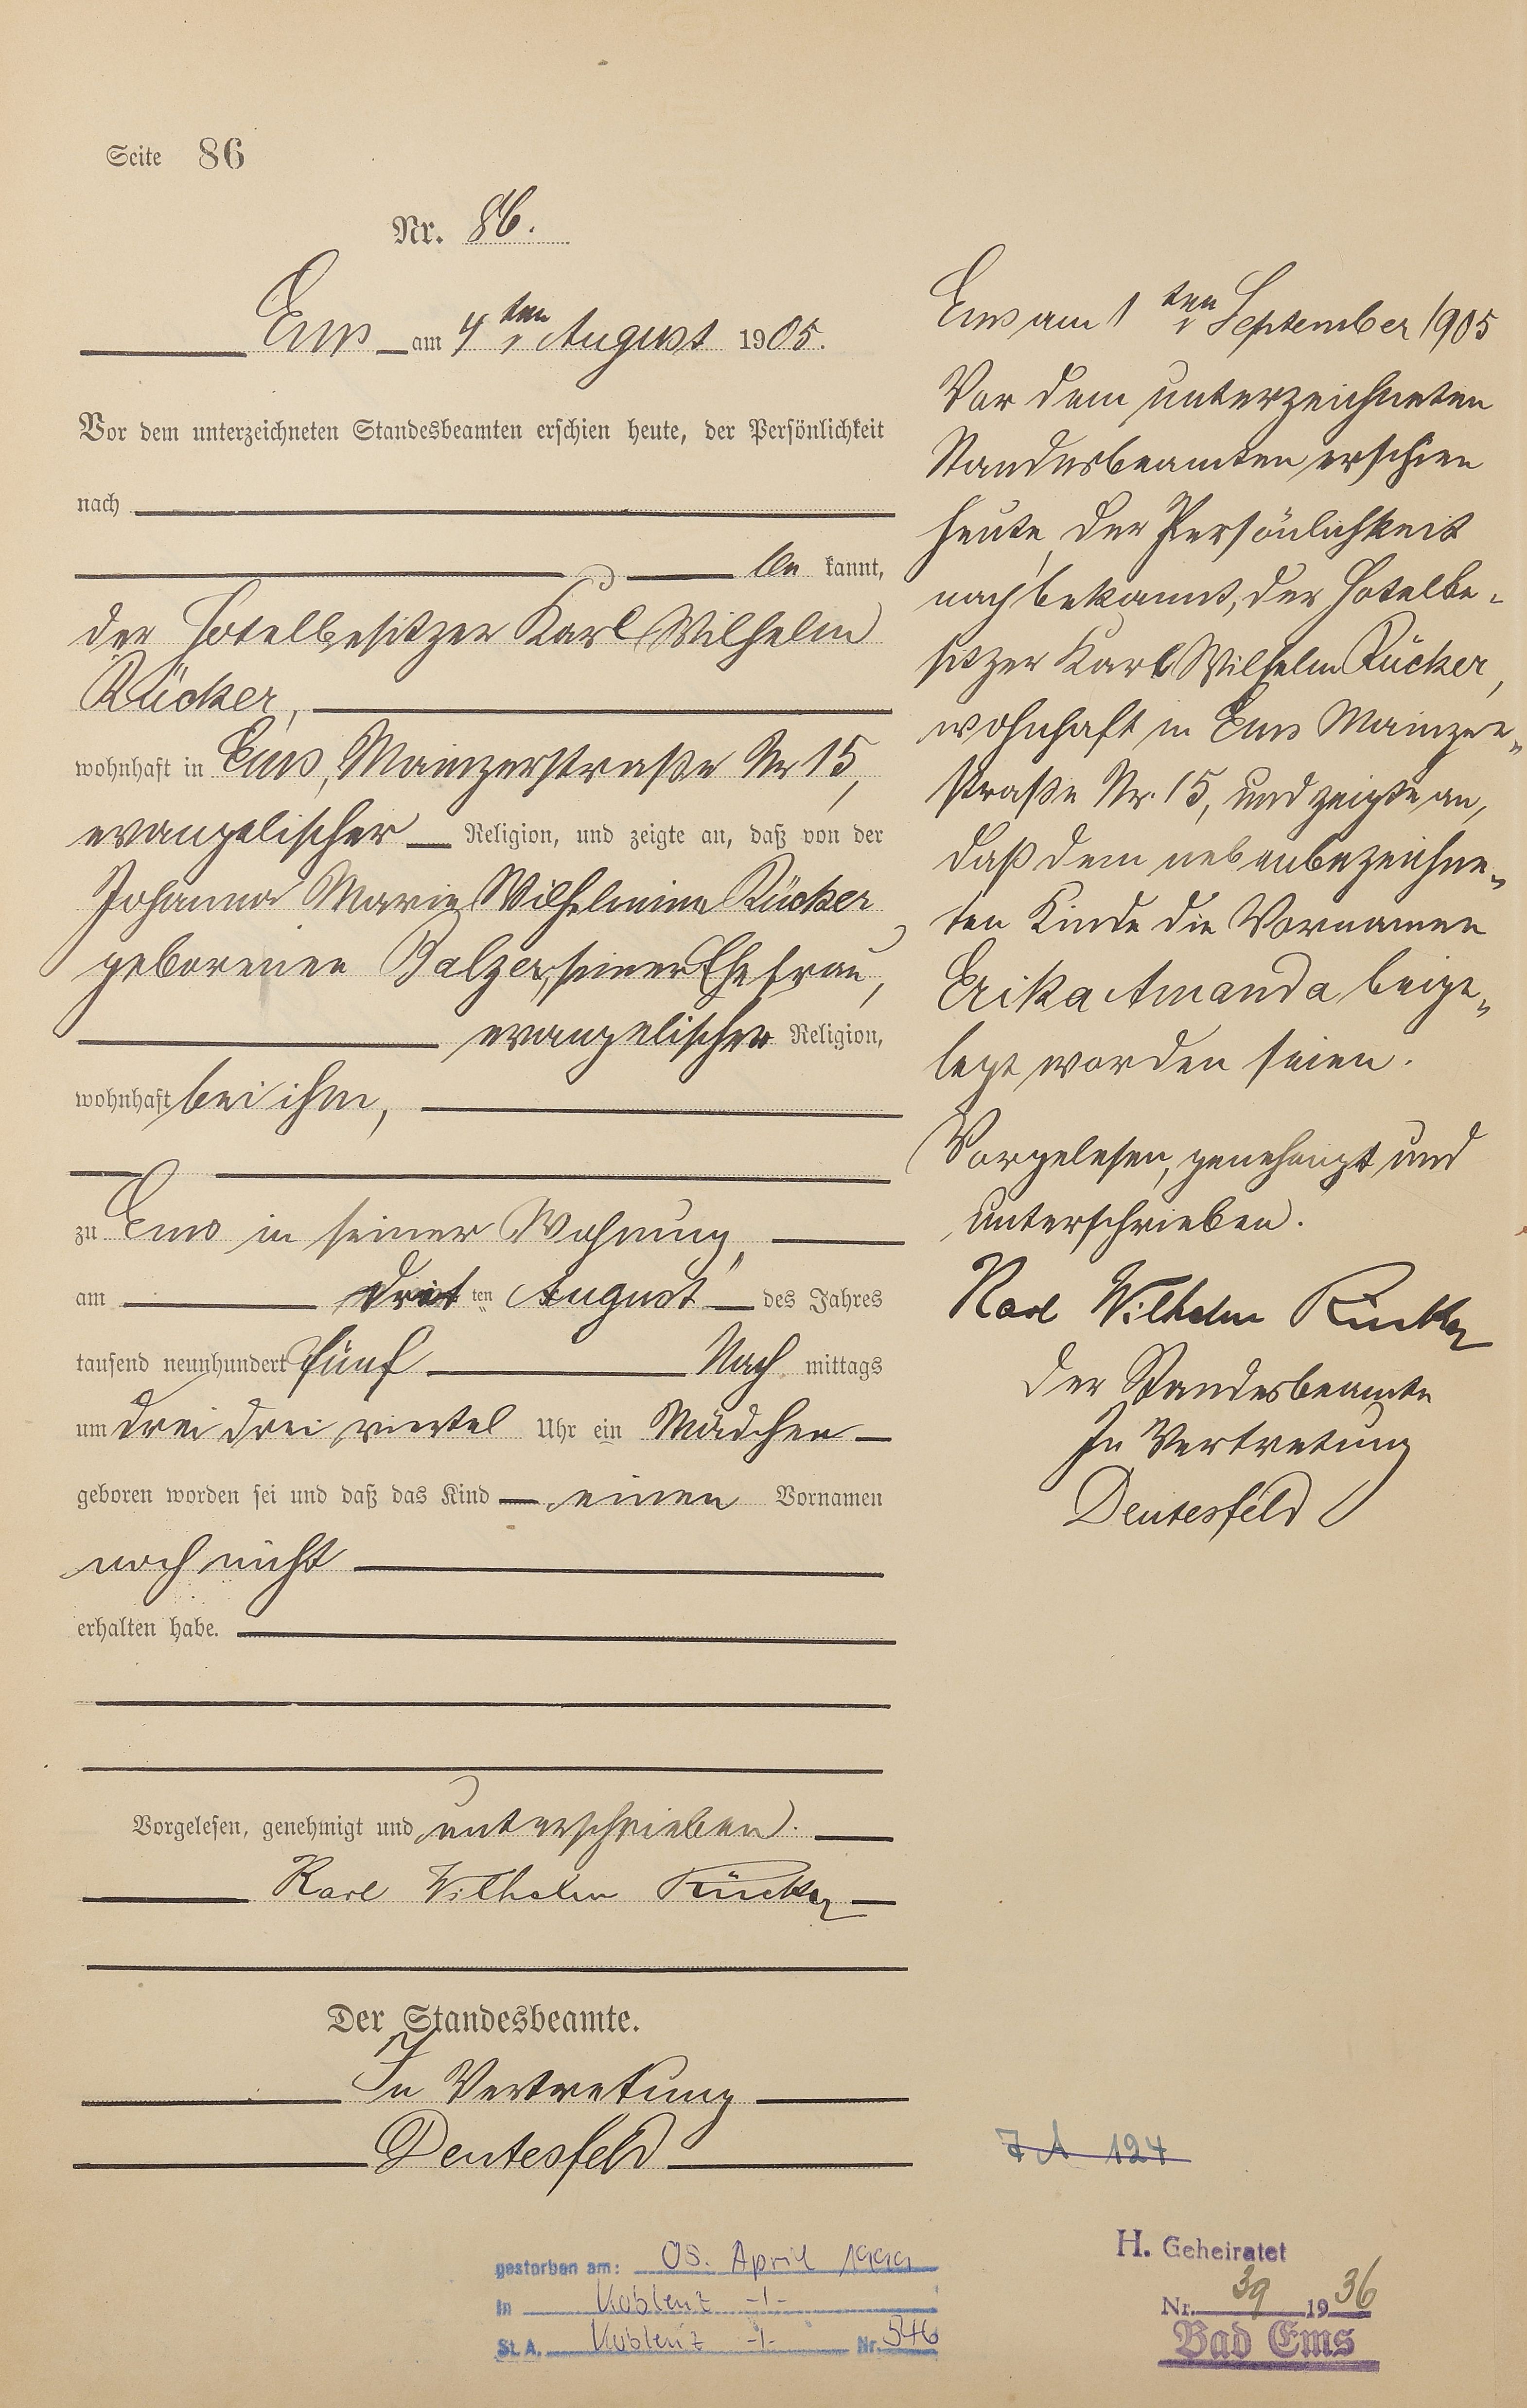 Seite 86
Nr. 86.
Ems am 4ten August 1905.
Vor dem unterzeichneten Standesbeamten erschien heute, der Persönlichkeit
nach
be kannt,
der Hotelbesitzer Karl Wilhelm
Rücker,
wohnhaft in Ems, Mainzerstraße Nr 15,
evangelischer Religion, und zeigte an, daß von der
Johanna Marie Wilhelmine Rücker
geborenen Balzer, seiner Ehefrau,
evangelischer Religion,
wohnhaft bei ihm,
zu Ems in seiner Wohnung,
am dritten August des Jahres
tausend neunhundert fünf Nach mittags
um drei drei viertel Uhr ein Mädchen
geboren worden sei und daß das Kind einen Vornamen
noch nicht
erhalten habe.
Vorgelesen, genehmigt und unterschrieben.
Karl Wilhelm Rücker
Der Standesbeamte.
In Vertretung
Deutesfeld
Ems am 1ten September 1905
Vor dem unterzeichneten
Standesbeamten erschien
heute, der Persönlichkeit
nach bekannt, der Hotelbe-
sitzer Karl Wilhelm Rücker,
wohnhaft in Ems Mainzer-
straße Nr. 15, und zeigte an,
daß dem nebenbezeichne-
ten Kinde die Vornamen
Erika Amanda beige-
legt worden seien.
Vorgelesen, genehmigt und
unterschrieben.
Karl Wilhelm Rücker
Der Standesbeamte
In Vertretung
Deutesfeld
124
gestorben am: 08. April 1999
in Koblenz -/-
St. A. Koblenz -/- Nr. 546
H. Geheiratet
Nr. 39 1936
Bad Ems